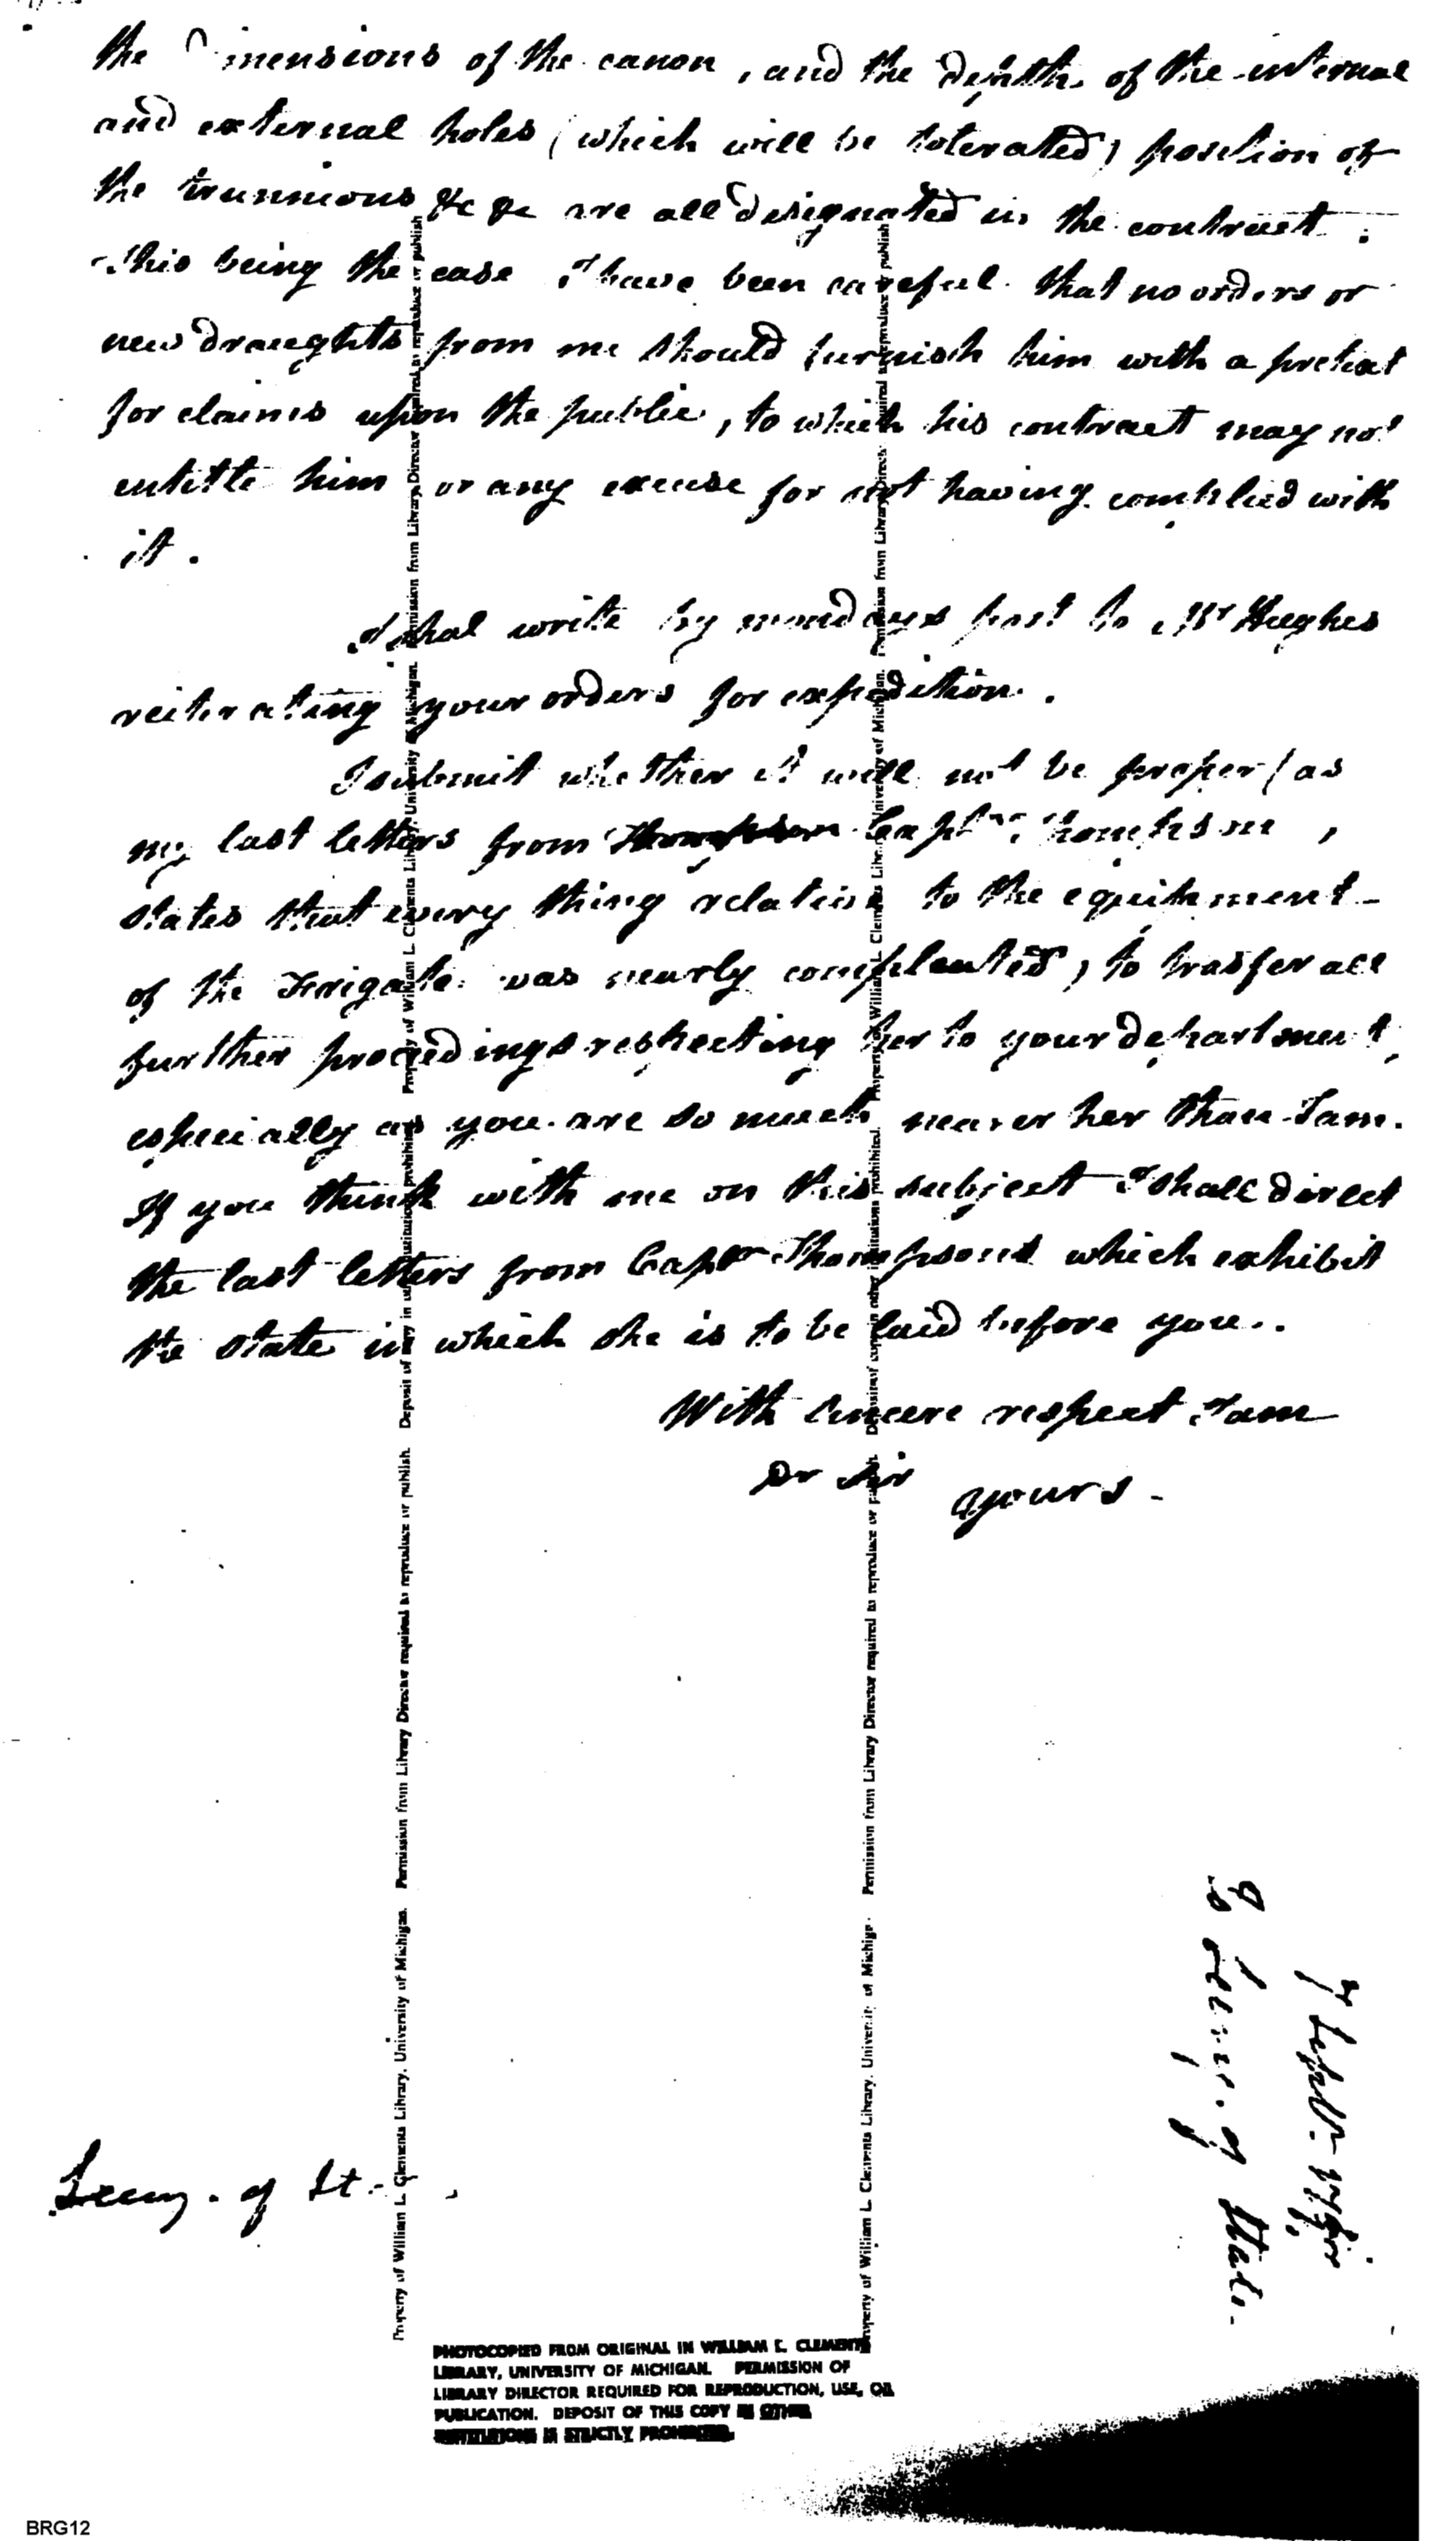 the Dimensions of the canon, and the depth of the internal
and external holes (which will be tolerated) position of
the trunnions &c &c are all designated in the contract.
This being the case I have been careful that no orders or
new draughts from me should furnish him with a pretext
for claims upon the public, to which his contract may not
entitle him or any excuse for not having complied with
it.
I shal write by mondays post to Mr Hughes
reiterating your orders for expedition.
I submit whether it will not be proper (as
my last letters from Thompson Captn Thompson,
states that every thing relative to the equipment
of the Frigate was nearly compleated) to trasfer all
further proceedings respecting her to your department,
especially as you are so much nearer her than I am.
If you think with me on this subject I shall direct
the last letters from Captn Thompson which exhibit
the state in which she is to be laid before you..
With sincere respect I am
Dr Sir yours -
Secry. of St-
To Secry. of State.
7 Septr. 1798
Property of William L. Clements Library, University of Michigan. Permission from Library Director required to reproduce or publish. Deposit of copy in other institutions prohibited. Property of William L. Clements Library, University of Michigan. Permission from Library Director required to reproduce or publish
Property of William L. Clements Library, University of Michigan. Permission from Library Director required to reproduce or publish. Deposit of copy in other institutions prohibited. Property of William L. Clements Library, University of Michigan. Permission from Library Director required to reproduce or publish
PHOTOCOPIED FROM ORIGINAL IN WILLIAM L. CLEMENTS
LIBRARY, UNIVERSITY OF MICHIGAN. PERMISSION OF
LIBRARY DIRECTOR REQUIRED FOR REPRODUCTION, USE, OR
PUBLICATION. DEPOSIT OF THIS COPY IN OTHER
INSTITUTIONS IS STRICTLY PROHIBITED.
BRG12